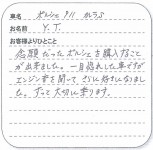 車名 ポルシェ 911 カレラS
お名前 Y.T.
お客様よりひとこと
念願だったポルシェを購入すること
が出来ました。一目惚れした車ですが
エンジン音を聞いて、さらに好きになりまし
た。ずっと大切に乗ります。